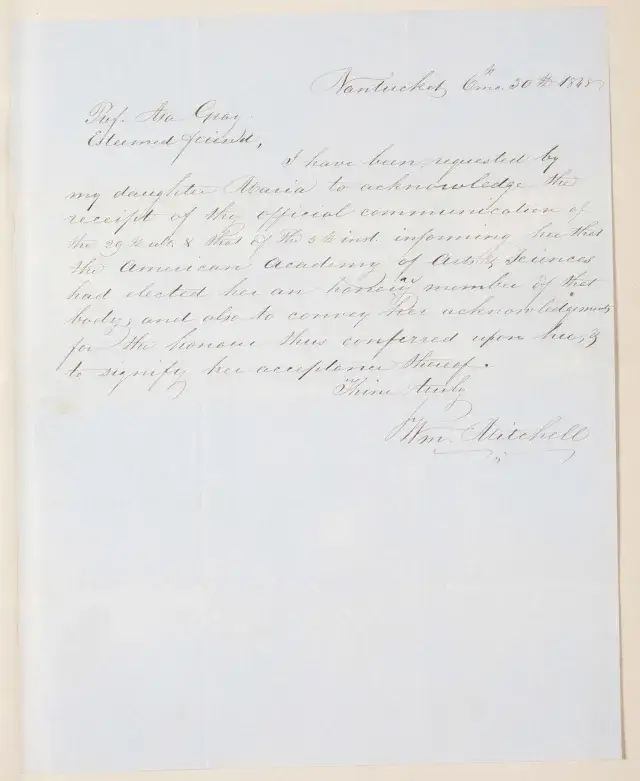 Nantucket 6th mo. 30th 1848
Prof. Asa Gray.
Esteemed friend,
I have been requested by
my daughter Maria to acknowledge the
receipt of thy official communication of
the 29th ult. & that of the 5th inst. informing her that
the American Academy of Arts & Sciences
had elected her an honorary member of that
body, and also to convey her acknowledgements
for the honour thus conferred upon her, &
to signify her acceptance thereof.
Thine truly
Wm. Mitchell